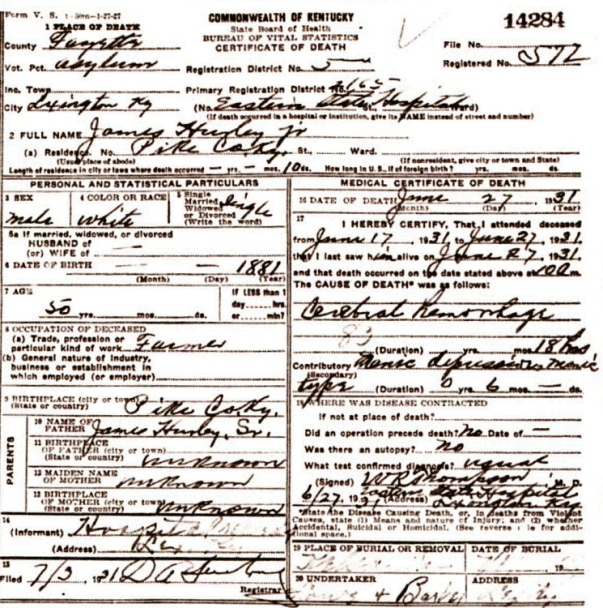 Form V. S.
COMMONWEALTH OF KENTUCKY
State Board of Health
BUREAU OF VITAL STATISTICS
CERTIFICATE OF DEATH
14284
1 PLACE OF DEATH
County Fayette
File No.
Vot. Pct. Asylum
Registration District No. 5
Registered No. 572
Inc. Town
Primary Registration District No. 2165
City Lexington Ky
(No. Eastern State Hospital Ward)
(If death occurred in a hospital or institution, give its NAME instead of street and number)
2 FULL NAME James Hurley Jr
(a) Residence. No. Pike Co Ky. St., Ward.
(Usual place of abode) (If nonresident, give city or town and State)
Length of residence in city or town where death occurred — yrs. — mos. 10 ds. How long in U. S., if of foreign birth? yrs. mos. ds.
PERSONAL AND STATISTICAL PARTICULARS
3 SEX
male
4 COLOR OR RACE
white
5 Single
Married
Widowed
or Divorced
(Write the word)
Single
5a If married, widowed, or divorced
HUSBAND of
(or) WIFE of
6 DATE OF BIRTH — — 1881
(Month) (Day) (Year)
7 AGE
50 yrs. mos. ds.
IF LESS than 1
day hrs.
or min?
8 OCCUPATION OF DECEASED
(a) Trade, profession or
particular kind of work Farmer
(b) General nature of industry,
business or establishment in
which employed (or employer)
9 BIRTHPLACE (city or town)
(State or country) Pike Co Ky.
PARENTS
10 NAME OF
FATHER James Hurley, Sr.
11 BIRTHPLACE
OF FATHER (city or town)
(State or country) unknown
12 MAIDEN NAME
OF MOTHER unknown
13 BIRTHPLACE
OF MOTHER (city or town)
(State or country) unknown
14
(Informant) Hospital
(Address)
15
Filed 7/3, 1931
Registrar
MEDICAL CERTIFICATE OF DEATH
16 DATE OF DEATH June 27, 1931
(Month) (Day) (Year)
17
I HEREBY CERTIFY, That I attended deceased
from June 17, 1931 to June 27, 1931
that I last saw him alive on June 27, 1931
and that death occurred on the date stated above at 100 m.
The CAUSE OF DEATH* was as follows:
Cerebral hemorrhage
(Duration) yrs. mos. 18 hrs
Contributory Manic depressive manic
(Secondary)
type (Duration) 0 yrs. 6 mos. — ds.
18 WHERE WAS DISEASE CONTRACTED
If not at place of death?
Did an operation precede death? No Date of —
Was there an autopsy? No
What test confirmed diagnosis? usual
(Signed) W R Thompson M. D.
6/27, 19 (Address) Eastern State Hospital
Lexington Ky
*State the Disease Causing Death, or, in deaths from Violent
Causes, state (1) Means and nature of Injury; and (2) whether
Accidental, Suicidal or Homicidal. (See reverse side for addi-
tional space.)
19 PLACE OF BURIAL OR REMOVAL
DATE OF BURIAL
20 UNDERTAKER
ADDRESS